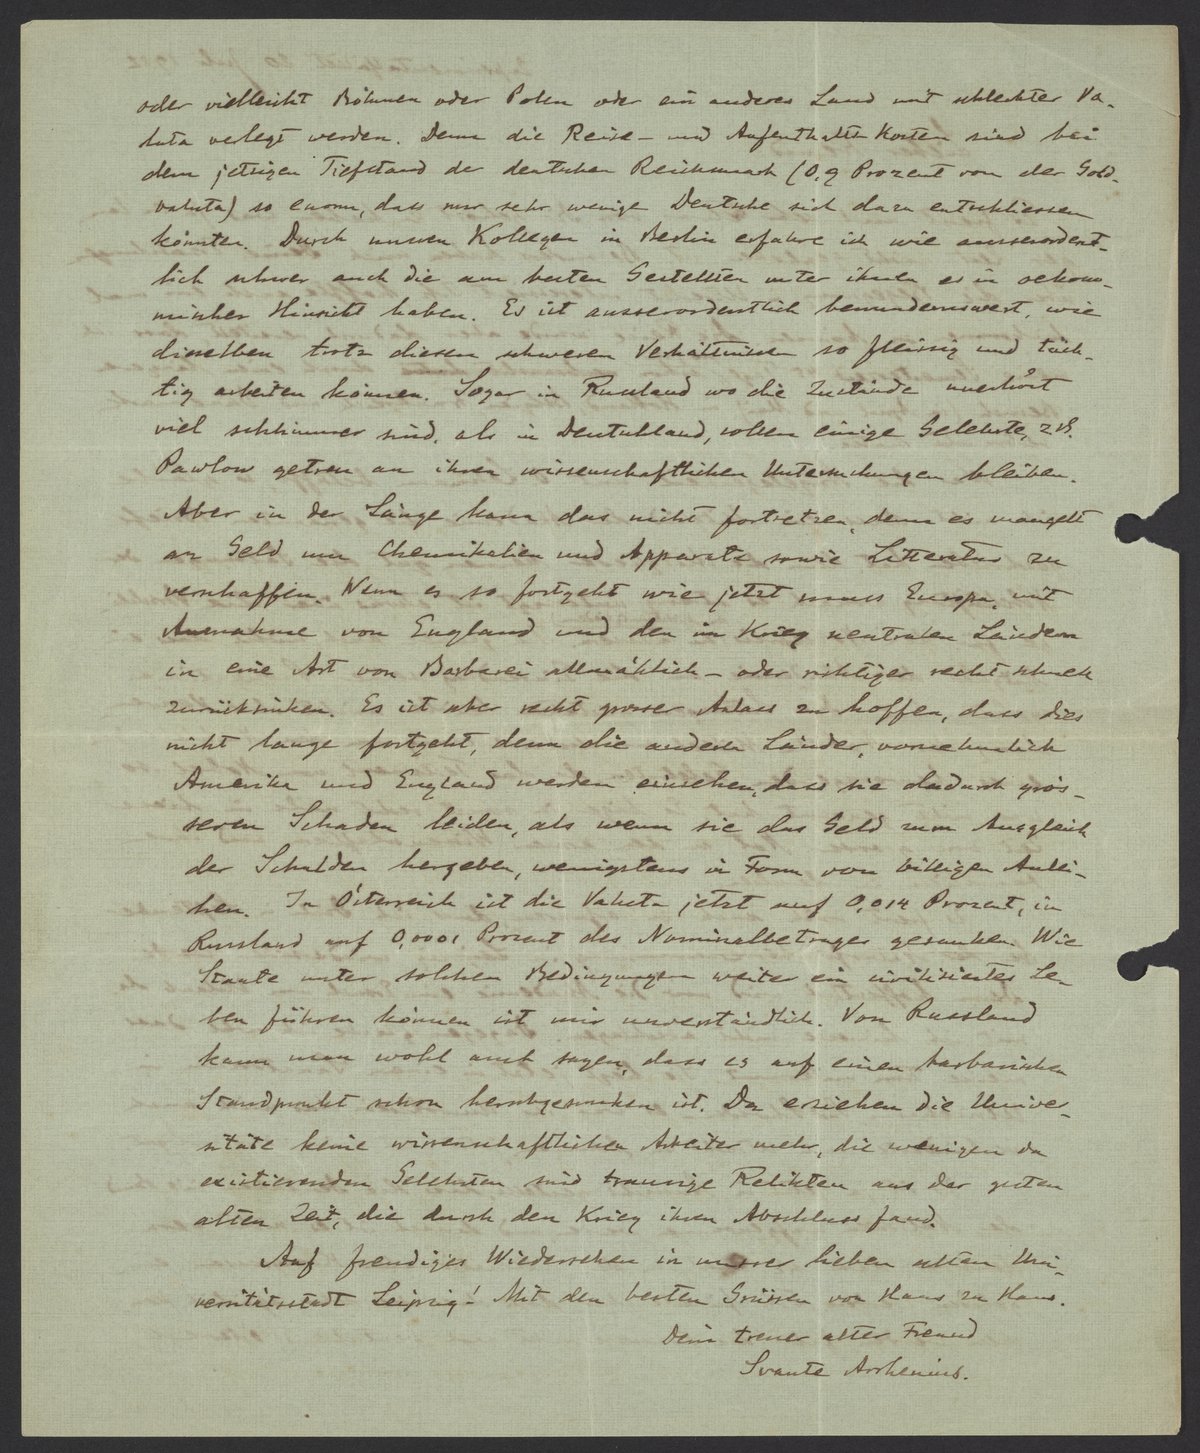 oder vielleicht Böhmen oder Polen oder ein anderes Land mit schlechter Va-
luta verlegt werden. Denn die Reise- und Aufenthalts Kosten sind bei
dem jetzigen Tiefstand der deutschen Reichsmark (0,9 Prozent von der Gold-
valuta) so enorm, dass nur sehr wenige Deutsche sich dazu entschliessen
könnten. Durch unseren Kollegen in Berlin erfahre ich wie ausserordent-
lich schwer auch die am besten Gestellten unter ihnen es in oekono-
mischer Hinsicht haben. Es ist ausserordentlich bewundernswert, wie
dieselben trotz diesen schweren Verhältnissen so fleissig und tüch-
tig arbeiten können. Sogar in Russland wo die Zustände unerhört
viel schlimmer sind, als in Deutschland, sollen einige Gelehrte, z.B.
Pawlow getreu an ihren wissenschaftlichen Untersuchungen bleiben.
Aber in der Länge kann das nicht fortsetzen, denn es mangelt
an Geld um Chemikalien und Apparate sowie Litteratur zu
verschaffen. Wenn es so fortgeht wie jetzt muss Europa, mit
Ausnahme von England und den im Krieg neutralen Ländern
in eine Art von Barbarei allmählich – oder richtiger recht schnell
zurücksinken. Es ist aber recht grosser Anlass zu hoffen, dass dies
nicht lange fortgeht, denn die anderen Länder, vornehmlich
Amerika und England werden einsehen, dass sie dadurch grös-
seren Schaden leiden, als wenn sie das Geld zum Ausgleich
der Schulden hergeben, wenigstens in Form von billigen Anlei-
hen. In Österreich ist die Valuta jetzt auf 0,014 Prozent, in
Russland auf 0,0001 Prozent des Nominalbetrages gesunken. Wie
Staate unter solchen Bedingungen weiter ein civilisiertes Le-
ben führen können ist mir unverständlich. Von Russland
kann man wohl auch sagen, dass es auf einen barbarischen
Standpunkt schon herabgesunken ist. Da erziehen die Univer-
sitäte keine wissenschaftlichen Arbeiter mehr, die wenigen da
existierenden Gelehrten sind traurige Relikten aus der guten
alten Zeit, die durch den Krieg ihren Abschluss fand.
Auf freudiges Wiedersehen in unserer lieben alten Uni-
versitätsstadt Leipzig! Mit den besten Grüssen von Haus zu Haus.
Dein treuer alter Freund
Svante Arrhenius.